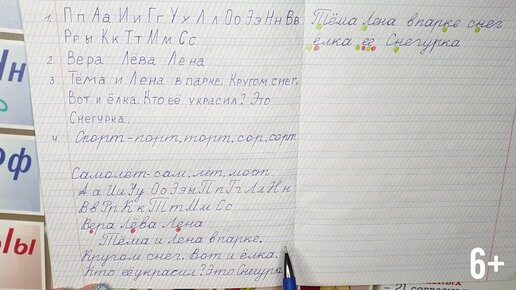 1. Пп Аа Ии Гг Уу Лл Оо Ээ Нн Вв
Рр ы Кк Тт Мм Сс
2. Вера Лёва Лена
3. Тёма и Лена в парке. Кругом снег.
Вот и ёлка. Кто её украсил? Это
Снегурка.
4. Спорт-порт, торт, сор, сорт
Самолет-сам, лет, мост
Аа Ии Уу Оо Ээ ы Пп Гг Лл Нн
Вв Рр Кк Тт Мм Сс
Вера Лёва Лена
Тёма и Лена в парке.
Кругом снег. Вот и ёлка.
Кто ее украсил? Это Снегурка
Тёма Лена в парке снег
ёлка ее Снегурка
Нн
Фф
ы
6+